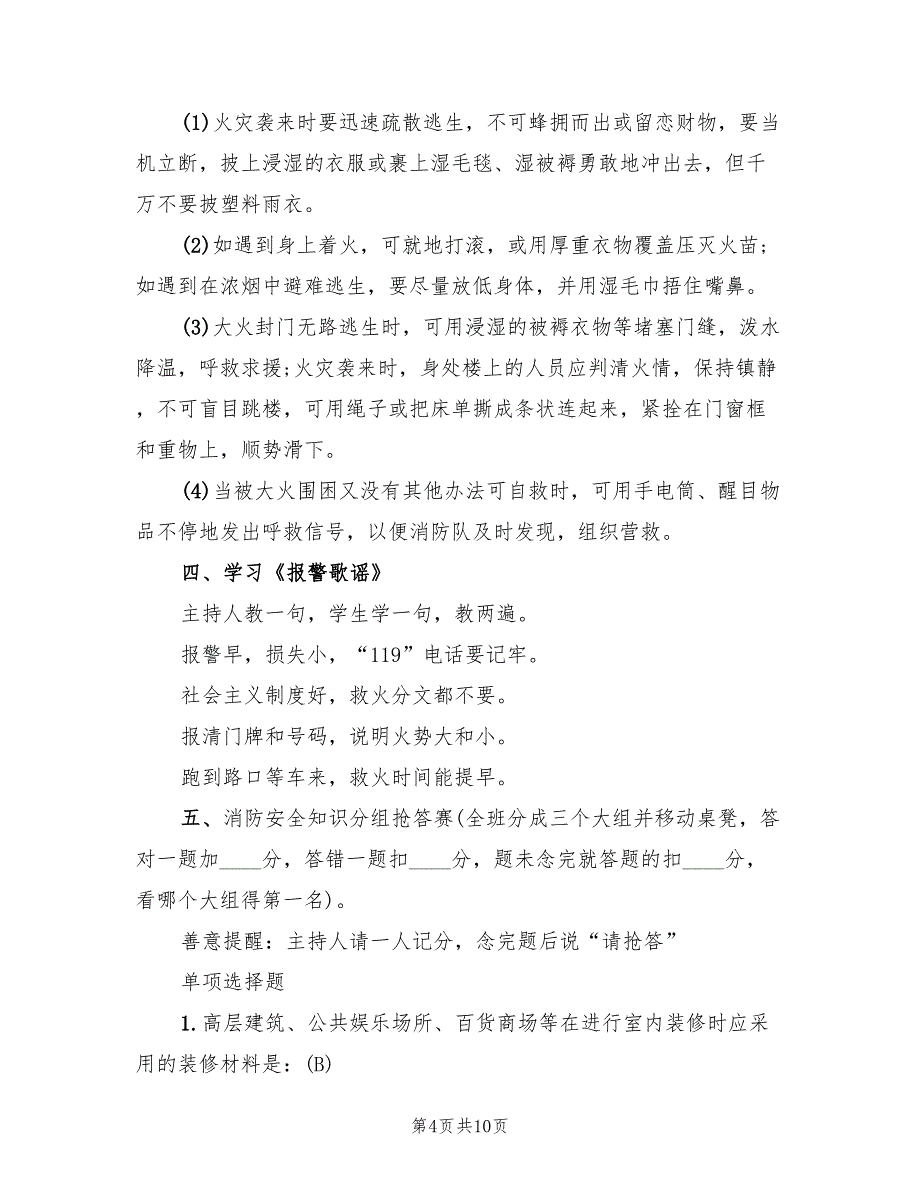 (1)火灾袭来时要迅速疏散逃生，不可蜂拥而出或留恋财物，要当
机立断，披上浸湿的衣服或裹上湿毛毯、湿被褥勇敢地冲出去，但千
万不要披塑料雨衣。
(2)如遇到身上着火，可就地打滚，或用厚重衣物覆盖压灭火苗；
如遇到在浓烟中避难逃生，要尽量放低身体，并用湿毛巾捂住嘴鼻。
(3)大火封门无路逃生时，可用浸湿的被褥衣物等堵塞门缝，泼水
降温，呼救求援;火灾袭来时，身处楼上的人员应判清火情，保持镇静
，不可盲目跳楼，可用绳子或把床单撕成条状连起来，紧拴在门窗框
和重物上，顺势滑下。
(4)当被大火围困又没有其他办法可自救时，可用手电筒、醒目物
品不停地发出呼救信号，以便消防队及时发现，组织营救。
四、学习《报警歌谣》
主持人教一句，学生学一句，教两遍。
报警早，损失小，“119”电话要记牢。
社会主义制度好，救火分文都不要。
报清门牌和号码，说明火势大和小。
跑到路口等车来，救火时间能提早。
五、消防安全知识分组抢答赛(全班分成三个大组并移动桌凳，答
对一题加____分，答错一题扣____分，题未念完就答题的扣____分，
看哪个大组得第一名)。
善意提醒：主持人请一人记分，念完题后说“请抢答”
单项选择题
1.高层建筑、公共娱乐场所、百货商场等在进行室内装修时应采
用的装修材料是：(B)
第4页共10页